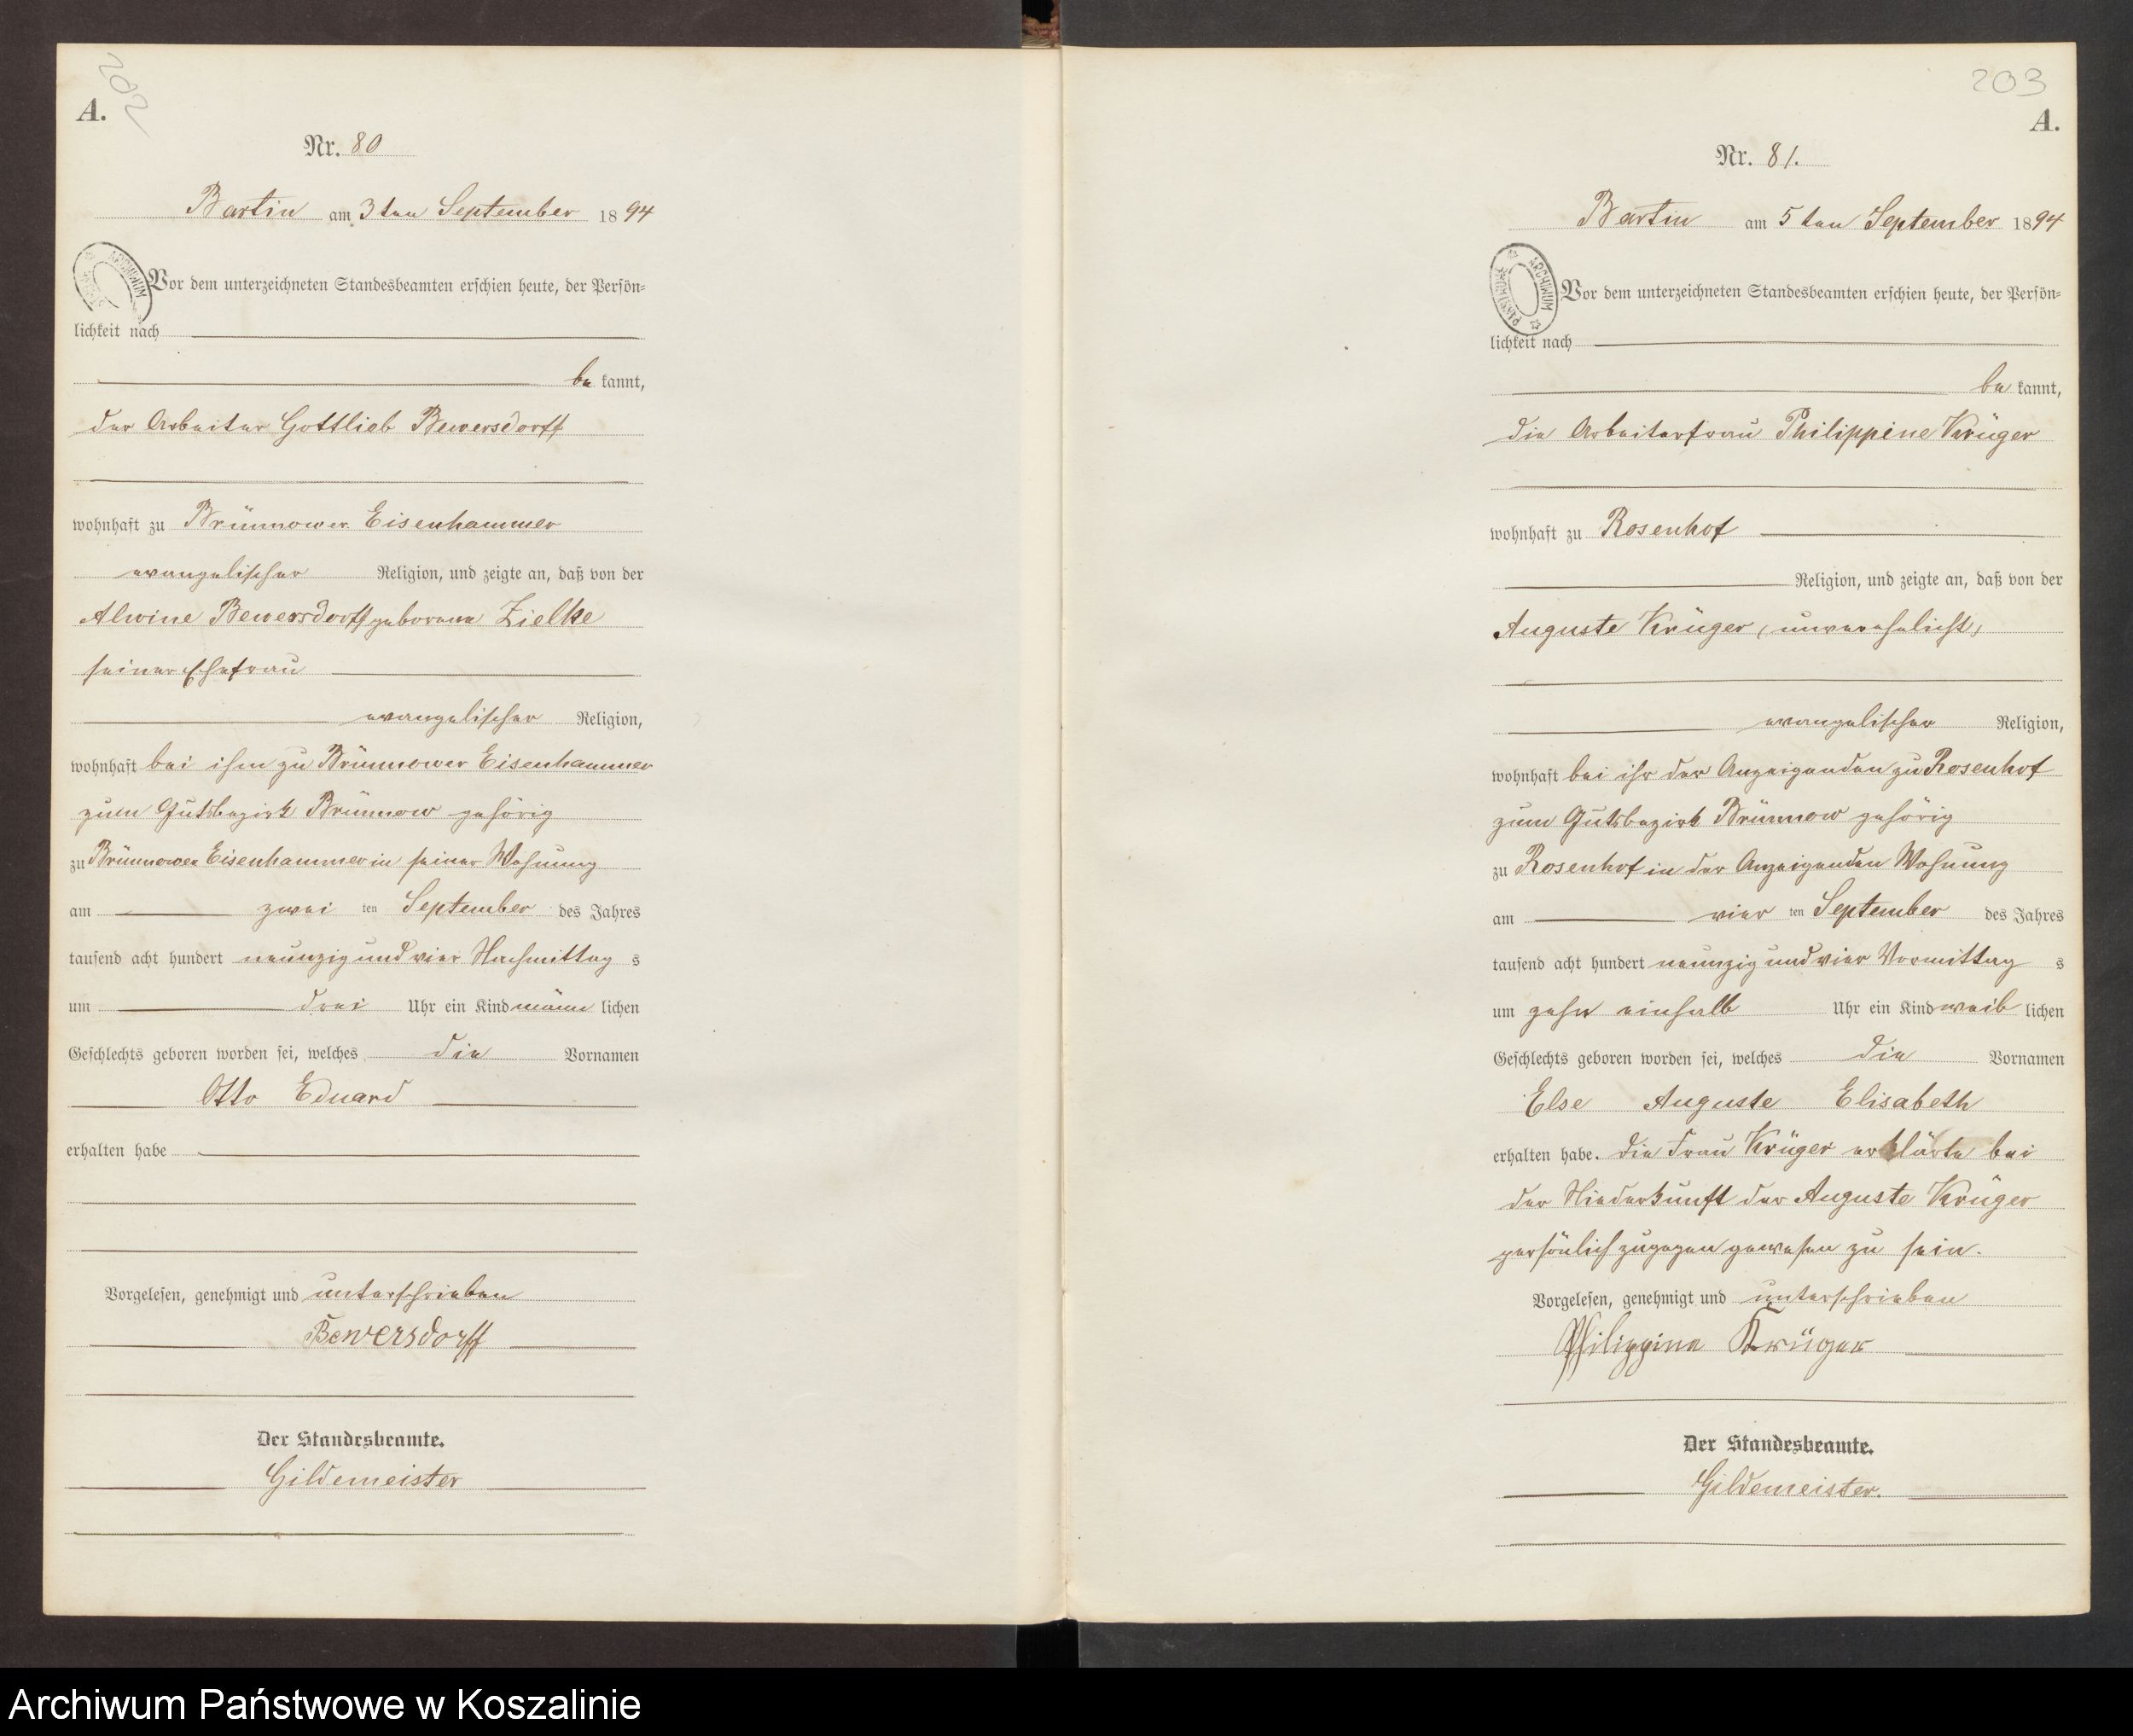 202
A.
Nr. 80
Bartin am 3ten September 1894
ARCHIWUM
Vor dem unterzeichneten Standesbeamten erschien heute, der Persön=
lichkeit nach
be kannt,
der Arbeiter Gottlieb Bewersdorff
wohnhaft zu Brünnower Eisenhammer
evangelischer Religion, und zeigte an, daß von der
Alwine Bewersdorff geborene Zielke
seiner Ehefrau
evangelischer Religion,
wohnhaft bei ihm zu Brünnower Eisenhammer
zum Gutsbezirk Brünnow gehörig
zu Brünnower Eisenhammer in seiner Wohnung
am zwei ten September des Jahres
tausend acht hundert neunzig und vier Nachmittag s
um drei Uhr ein Kind männ lichen
Geschlechts geboren worden sei, welches die Vornamen
Otto Eduard
erhalten habe
Vorgelesen, genehmigt und unterschrieben
Bewersdorff
Der Standesbeamte.
Gildemeister
203
A.
Nr. 81.
Bartin am 5ten September 1894
ARCHIWUM PAŃSTWOWE
Vor dem unterzeichneten Standesbeamten erschien heute, der Persön=
lichkeit nach
be kannt,
die Arbeiterfrau Philippine Krüger
wohnhaft zu Rosenhof
Religion, und zeigte an, daß von der
Auguste Krüger, (unverehelicht)
evangelischer Religion,
wohnhaft bei ihr der Anzeigenden zu Rosenhof
zum Gutsbezirk Brünnow gehörig
zu Rosenhof in der Anzeigenden Wohnung
am vier ten September des Jahres
tausend acht hundert neunzig und vier Vormittag s
um zehn einhalb Uhr ein Kind weib lichen
Geschlechts geboren worden sei, welches die Vornamen
Else Auguste Elisabeth
erhalten habe. Die Frau Krüger erklärte bei
der Niederkunft der Auguste Krüger
persönlich zugegen gewesen zu sein.
Vorgelesen, genehmigt und unterschrieben
Philippine Krüger
Der Standesbeamte.
Gildemeister.
Archiwum Państwowe w Koszalinie